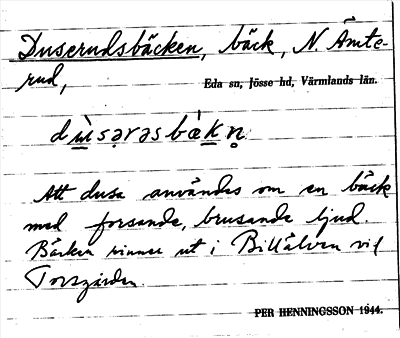 Duserudsbäcken, bäck, N Ämte-
rud, Eda sn, Jösse hd, Värmlands län.
dùsərəsbàkn̥
Att dusa användes om en bäck
med forsande, brusande ljud.
Bäcken rinner ut i Billälven vid
Torsgården.
PER HENNINGSSON 1944.